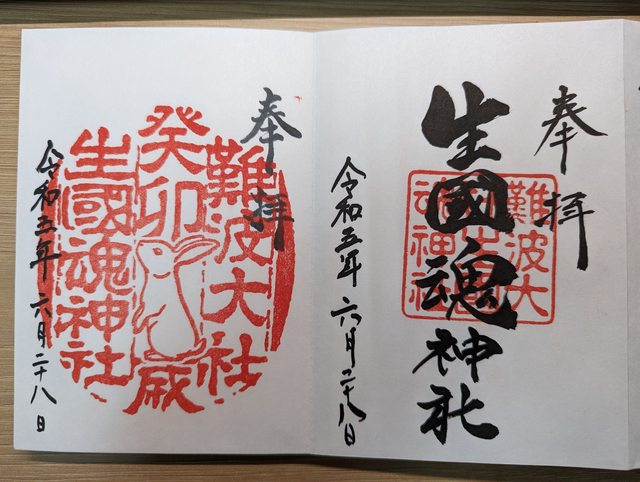 奉拝
生國魂神社
難波大社
生國魂神社
令和五年六月二十八日
奉拝
難波大社
癸卯歳
生國魂神社
令和五年六月二十八日